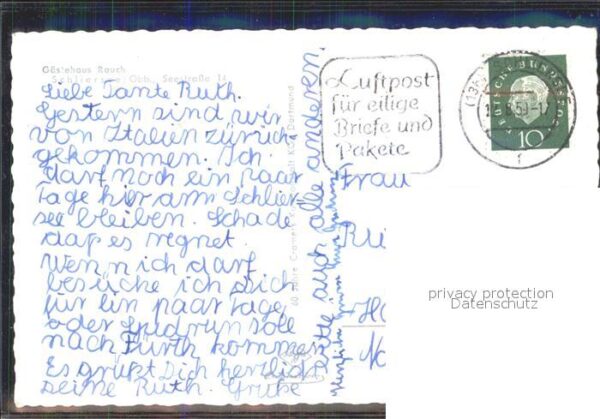 Gästehaus Rauch
Schliersee Obb., Seestraße 14
Liebe Tante Ruth.
Gestern sind wir
von Italien zurück
gekommen. Ich
darf noch ein paar
Tage hier am Schlier-
see bleiben. Schade
daß es regnet.
Wenn ich darf
besuche ich Dich
für ein paar Tage,
oder Gudrun soll
nach Fürth kommen
Es grüßt Dich herzlich
Deine Ruth. Grüße
bitte auch alle anderen.
Luftpost
für eilige
Briefe und
Pakete
DEUTSCHE BUNDESPOST
10
Frau
privacy protection
Datenschutz